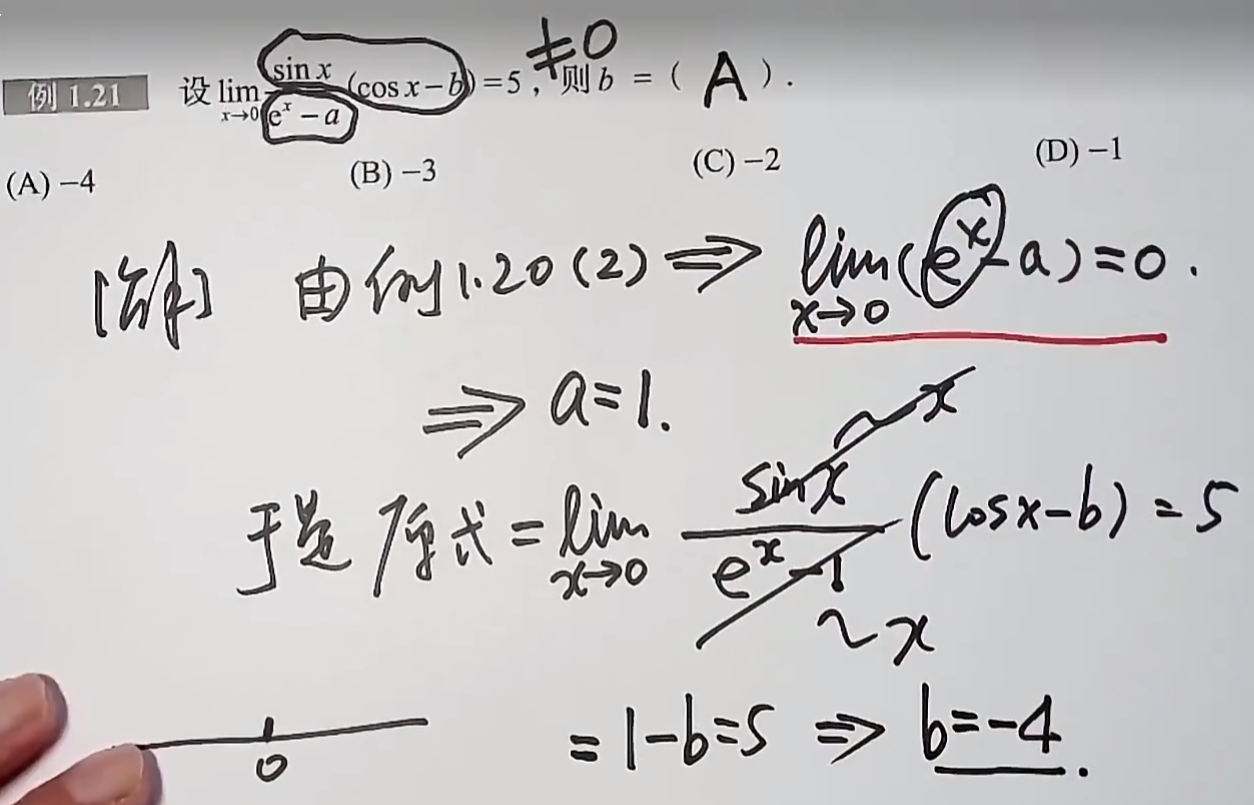 例 1.21 设 lim x→0 sin x / (e^x − a) (cos x − b) = 5, 则 b = ( A ). ≠0
(A) −4 (B) −3 (C) −2 (D) −1
[解] 由例1.20(2) ⇒ lim x→0 (e^x − a) = 0.
⇒ a = 1.
于是 原式 = lim x→0 sin x / (e^x − 1) (cos x − b) = 5
~ x
~ x
0
= 1 − b = 5 ⇒ b = −4.